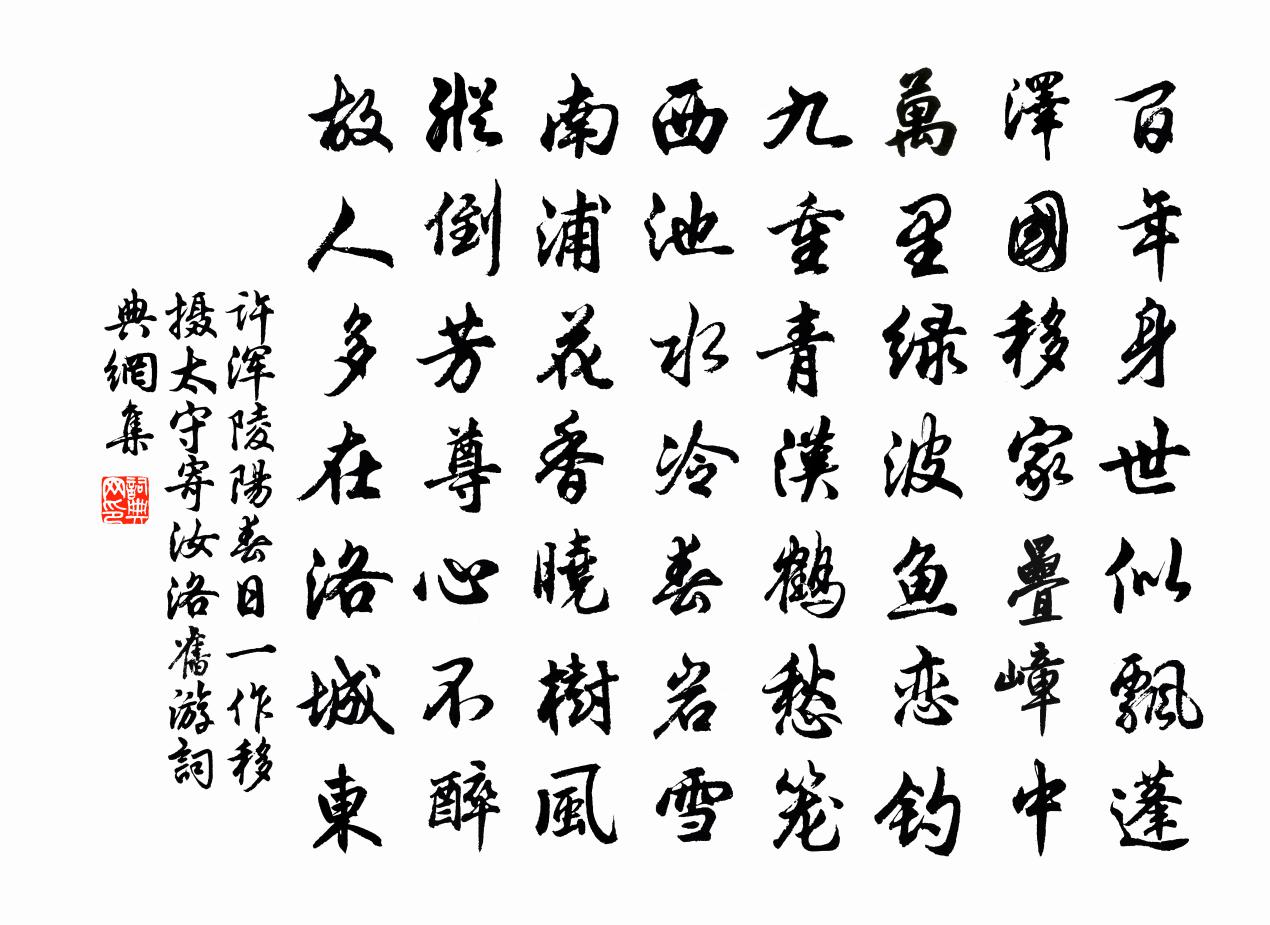 百年身世似飄蓬
澤國移家疊嶂中
萬里绿波鱼恋钓
九重青漢鶴愁笼
西池水冷春岩雪
南浦花香曉樹風
縱倒芳尊心不醉
故人多在洛城東
许浑陵陽春日一作移
摄太守寄汝洛舊游詞
典網集
詞典网印